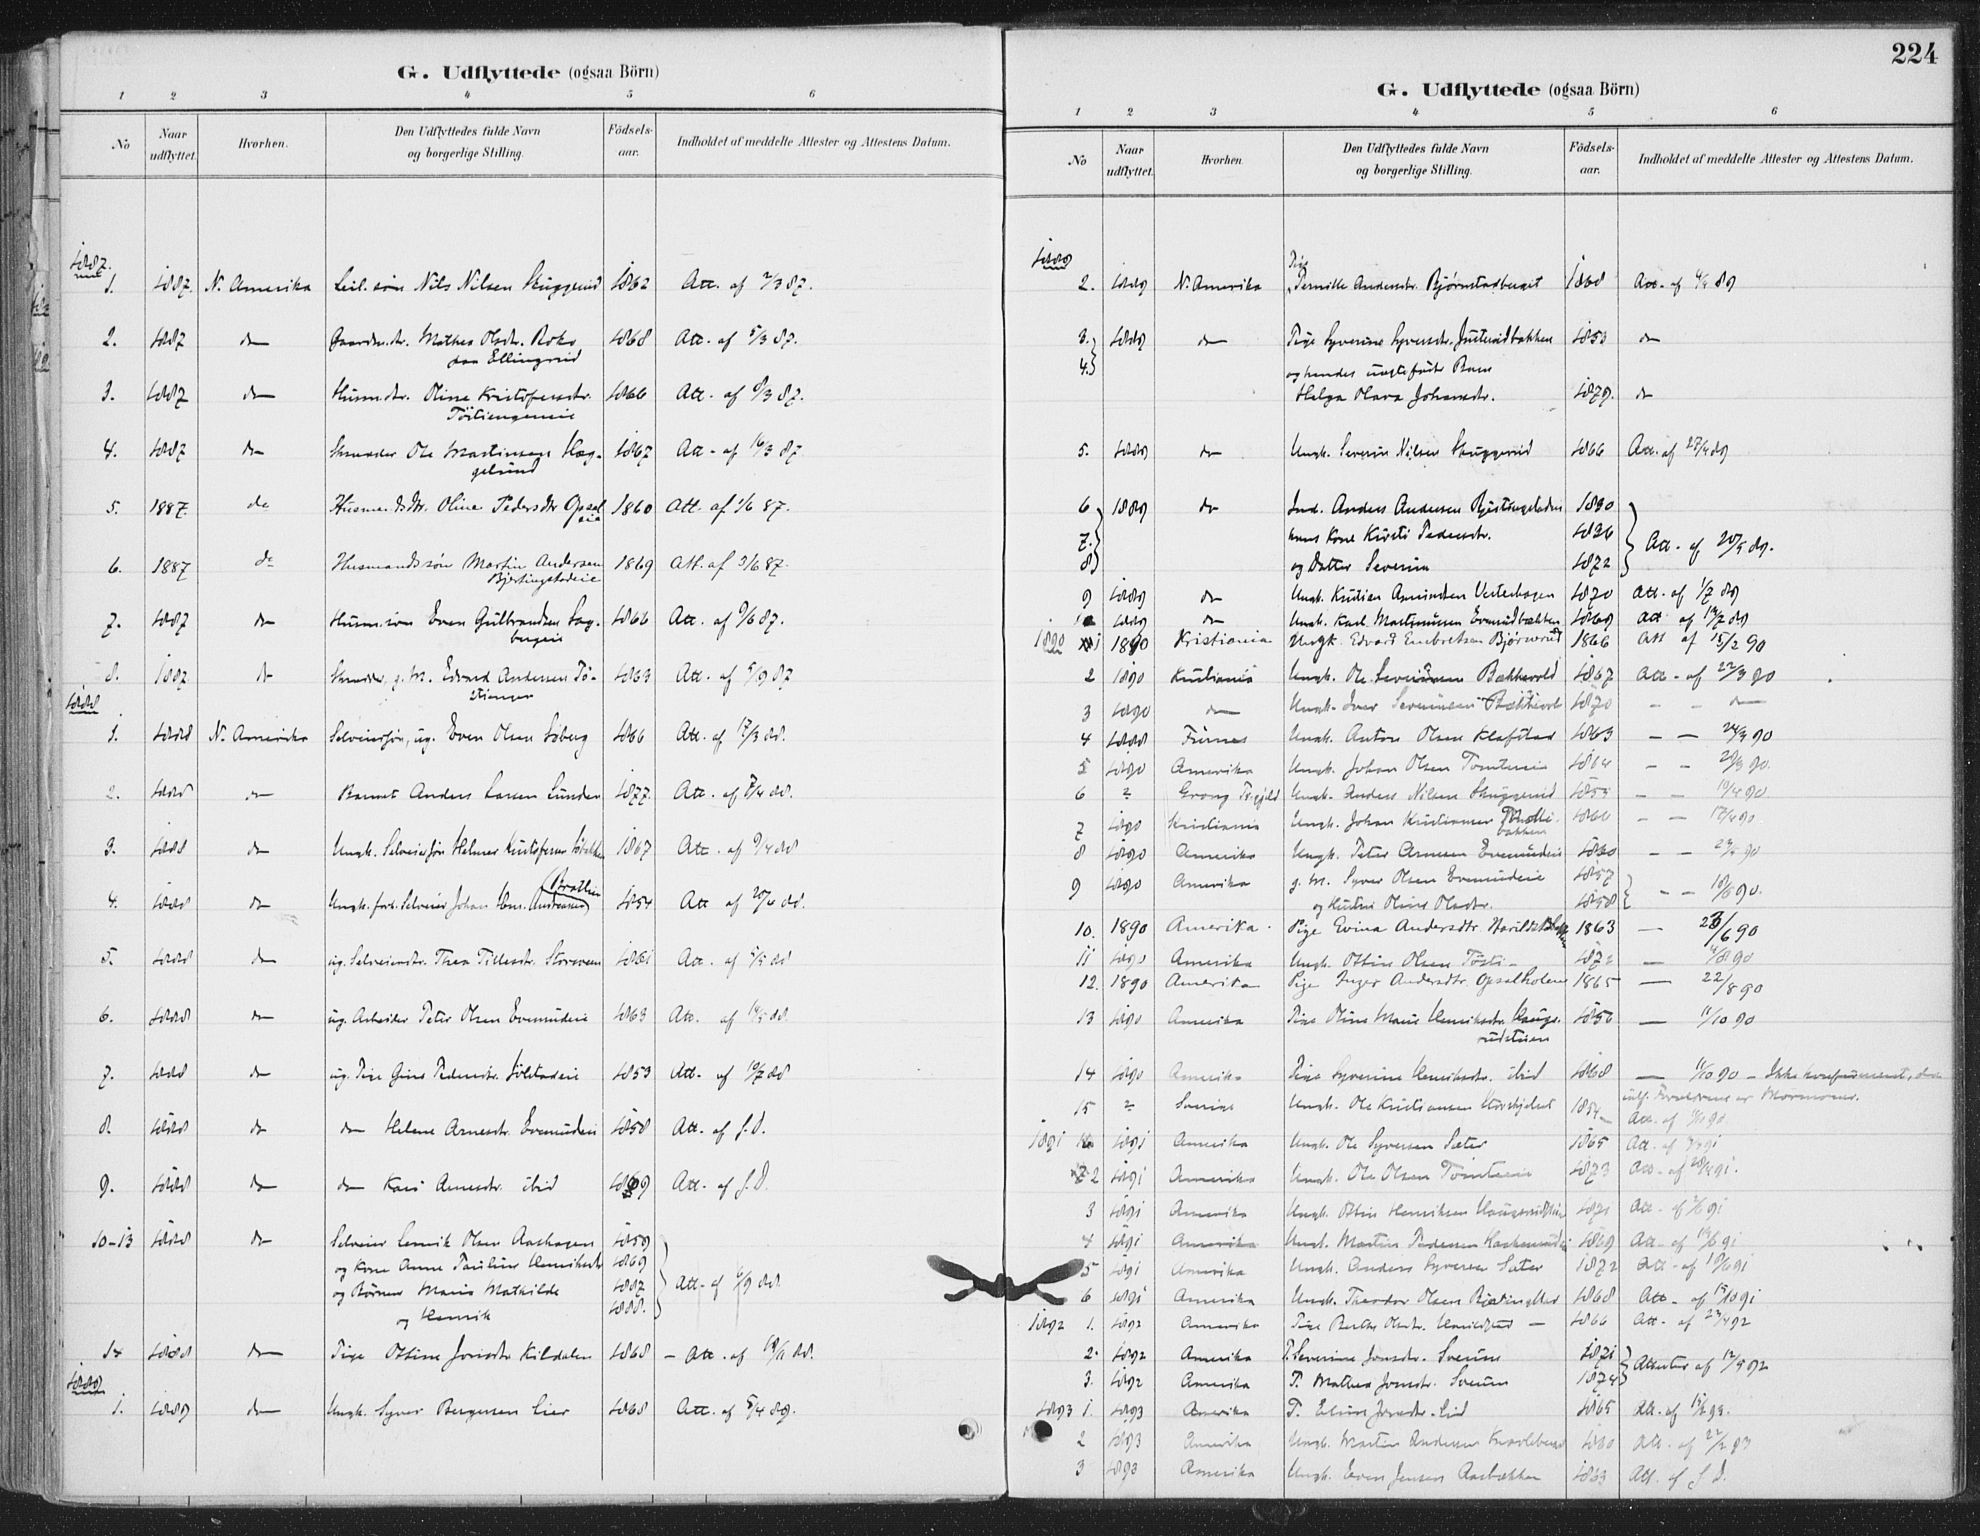 G. Udflyttede (ogsaa Börn)
1 2 3 4 5 6
No Naar udflyttet. Hvorhen. Den Udflyttedes fulde Navn og borgerlige Stilling. Födsels-aar. Indholdet af meddelte Attester og Attestens Datum.
1887.
1. 1887. N. Amerika Leil. søn Nils Nilsen Skuggerud 1862 Att. af 2/3 87.
2. 1887 do Gaardm.dr. Mathea Olsdr. Roko 1868 Att. af 5/3 87.
paa Ellingsrud
3. 1887 do Husm.dtr. Oline Kristofersdtr. 1866 Att. af 9/3 87.
4. 1887 do Skrædder Ole Martinsen Hag- 1867 Att. af 16/3 87
gelund
5. 1887. do Husmandsdtr. Oline Pedersdtr Opsal 1860 Att. af 1/6 87.
eie
6. 1887 do Husmandssøn Martin Andersen 1869 Att. af 3/6 87.
Bjertingstadeie
7. 1887 do Husm.søn Even Gulbrandsen Hag- 1866 Att. af 9/6 87.
8. 1887 do Skrædder, g. M. Edvard Andersen Tø- 1863 Att. af 5/9 87
1888
1. 1888 N. Amerika Selveiersøn, ug. Even Olsen Søberg 1866 Att. af 17/3 88.
2. 1888 do Barnet Anders Larsen Lunden 1877. Att. af 7/4 88.
3. 1888 do Ungk. Selveiersøn Helmer Kristofersen 1867 Att. af 9/4 88
Bråthen
4. 1888 do Ungk. forh. Selveier Johan 1854 Att. af 20/4 88.
5. 1888 do ug. Selveierdtr. Thea 1861 Att. af 5/5 88
6. 1888 do ug. Arbeider Peter Olsen Evenrudeie 1863 Att. af 14/5 88
7. 1888 do ug. Pige Gina Pedersdtr. Sølstadeie 1853 Att. af 10/7 88
8. 1888 do do Helene Arnesdtr. Evenrudeie 1858 Att. af S. D.
9. 1888 do do Kari Arnesdtr. ibid 1869 Att. af S. D.
10-13 1888 do Selveier Lenvik Olsen Aashagen 1859
og Kone Anne Pauline Henriksdtr 1869
og Børnene Maria Mathilde 1887 Att. af 4/9 88.
og Henrik 1888.
14 1888 do Pige Ottine Jonsdtr. Kildalen 1868 - Att. af 19/11 88.
1889
1. 1889 do Ungk. Syver Bergersen Lier 1868 Att. af 5/4 89.
224
G. Udflyttede (ogsaa Börn)
1 2 3 4 5 6
No Naar udflyttet. Hvorhen. Den Udflyttedes fulde Navn og borgerlige Stilling. Födsels-aar. Indholdet af meddelte Attester og Attestens Datum.
1889
Pige
2. 1889 N. Amerika Pernille Andersdtr. Bjørnstadberget 1868 Att. af 4/4 89
3. 1889 do Pige Syverine Syversdtr. Justerudbakken 1853 do
4. og hendes uægtefødte Barn
Helga Olava Johansdtr. 1879. do
5. 1889 do Ungk. Severin Nilsen Skuggerud 1866 Att. af 27/4 89
6 1889 do Ind. Anders Andersen Bjertingstadeie 1830
7. hans Kone Kirsti Pedersdtr. 1826 Att. af 20/5 89.
8 og Datter Severine 1872
9 1889 do Ungk. Kristian Amundsen Vesterhagen 1870 Att. af 1/7 89
10 1889 do Ungk. Karl Martinusen Evenrudbakken 1869 Att. af 14/7 89
1890 1 1890 Kristiania Ungk. Edvard Embretsen Bjørnerud 1866 Att af 15/2 90
2 1890 Kristiania Ungk. Ole Severinsen Bækkevold 1867 Att. af 22/3 90
3 1890 do Ungk. Iver Severinsen Bækkevold 1870 - - do
4 1888 Furnes Ungk. Anton Olsen Klafstad 1863 - - 24/3 90
5 1890 Amerika Ungk. Johan Olsen Tomteeie 1864 - - 29/3 90.
6 2 Grong Ungk. Anders Nilsen Skuggerud 1859 - - 10/4 90.
7 1890 Kristiania Ungk. Johan Kristiansen 1866 - - 12/4 90.
bakken
8 1890 Amerika Ungk. Peter Arnesen Evenrudeie 1860 - - 23/5 90
9 1890 Amerika g. M. Syver Olsen Evenrudeie 1857
og Hustru Oline Olsdtr. 1858 - - 18/6 90.
10. 1890 Amerika. Pige Evina Andersdtr. 1863 - 23/6 90
11 1890 Amerika Ungk. Ottin Olsen Tøsti- 1872 - 4/8 90
12. 1890 Amerika Pige Inger Andersdtr. Opsalholene 1865 - 22/8 90
13 1890 Amerika Pige Oline Marie Henriksdtr. Haugs- 1850 - 11/10 90
rudstuen
14 1890 Amerika Pige Syverine Henriksdtr. ibid 1868 - 11/10 90 - Ikke konfirmeret, da
Forældrene er Mormoner.
15 2 Sverige Ungk. Ole Kristiansen 1854 Att. af
1891 1 1891 Amerika Ungk. Ole Syversen Sæter 1865 Att. af
2 1891 Amerika Ungk. Ole Olsen Tomteeie 1873 Att. af 28/4 91.
3 1891 Amerika Ungk. Ottin Henriksen Haugsrudstuen 1871 Att. af
4 1891 Amerika Ungk. Martin Pedersen 1869 Att. af 19/6 91
5 1891 Amerika Ungk. Anders Syversen Sæter 1872 Att. af 19/6 91
6 1891 Amerika Ungk. Theodor Olsen 1868 Att. af 19/10 91
1892 1. 1892 Amerika Pige Berthe Olsdtr. 1866 Att. af 23/4 92
2. 1892 Amerika P. Severine Jonsdtr. Sveum 1871
3. 1892 Amerika P. Mathea Jonsdtr. Sveum 1874 Attester af 12/5 92
1893 1. 1893 Amerika P. Eline Jonsdtr. ibid 1865 Att. af
2 1893 Amerika Ungk. Martin Andersen 1860 Att. af 22/2 93
3 1893 Amerika Ungk. Even Jensen Aasbakken 1863 Att. af S. D.